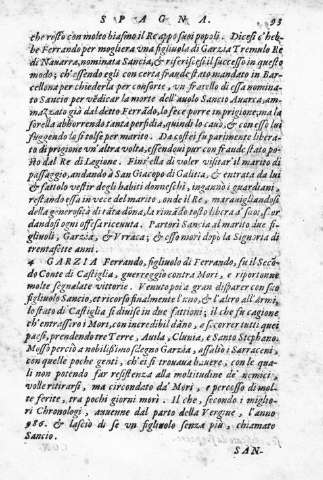 SPAGNA. 93
che resto con molto biasimo il Re appo suoi popoli. Dicesi c'heb-
be Ferrando per mogliera vna figliuola di Garzia Tremulo Re
di Nauarra, nominata Sancia, & riferiscesi il successo in questo
modo; ch'essendo egli con certa fraude stato mandato in Bar-
cellona per chiederla per consorte, vn fratello di essa nomina-
to Sancio per vēdicar la morte dell'auolo Sancio Auarca am-
mazzato già dal detto Ferrādo, lo fece porre in prigione, ma la
sorella abborrendo tanta perfidia, quindi lo cauò, & con esso lui
fuggendo la si tolse per marito. Da costei fu parimente libera-
to di prigione vn'altra volta, essendoui pur con fraude stato po-
sto dal Re di Legione. Finse ella di voler visitar il marito di
passaggio, andando à San Giacopo di Galitia, & entrata da lui
& fattolo vestir degli habiti donneschi, ingannò i guardiani,
restando essa in vece del marito, onde il Re, marauigliandosi
della generosità di tāta dōna, la rimādò tosto libera a' suoi, scor-
dandosi ogni offesa riceuuta. Partorì Sancia al marito due fi-
gliuoli, Garzia, & Vrraca; & esso morì dopo la Signoria di
trentasette anni.
4 GARZIA Ferrando, figliuolo di Ferrando, fu il Secō-
do Conte di Castiglia, guerreggiò contra Mori, e riportonne
molte segnalate vittorie. Venuto poi a gran disparer con suo
figliuolo Sancio, et ricorso finalmente l'uno, & l'altro all'armi,
lo stato di Castiglia si diuise in due fattioni; il che fu cagione
ch'entrassero i Mori, con incredibil dāno, a scorrer tutti quei
paesi, prendendo tre Terre, Auila, Clunia, e Santo Stephano.
Mosso perciò a nobilissimo sdegno Garzia, assalì i Sarraceni,
con quelle poche genti, ch'ei si trouaua hauere, con le qua-
li non potendo far resistenza alla moltitudine de' nemici,
volle ritirarsi, ma circondato da' Mori, e percosso di mol-
te ferite, tra pochi giorni morì. Il che, secondo i miglio-
ri Chronologi, auuenne dal parto della Vergine, l'anno
986. & lasciò di se vn figliuolo senza più, chiamato
Sancio.
SAN-